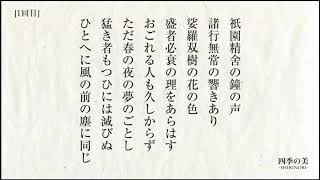 [1回目]
祇園精舎の鐘の声
諸行無常の響きあり
娑羅双樹の花の色
盛者必衰の理をあらはす
おごれる人も久しからず
ただ春の夜の夢のごとし
猛き者もつひには滅びぬ
ひとへに風の前の塵に同じ
四季の美
-SHIKINOBI-